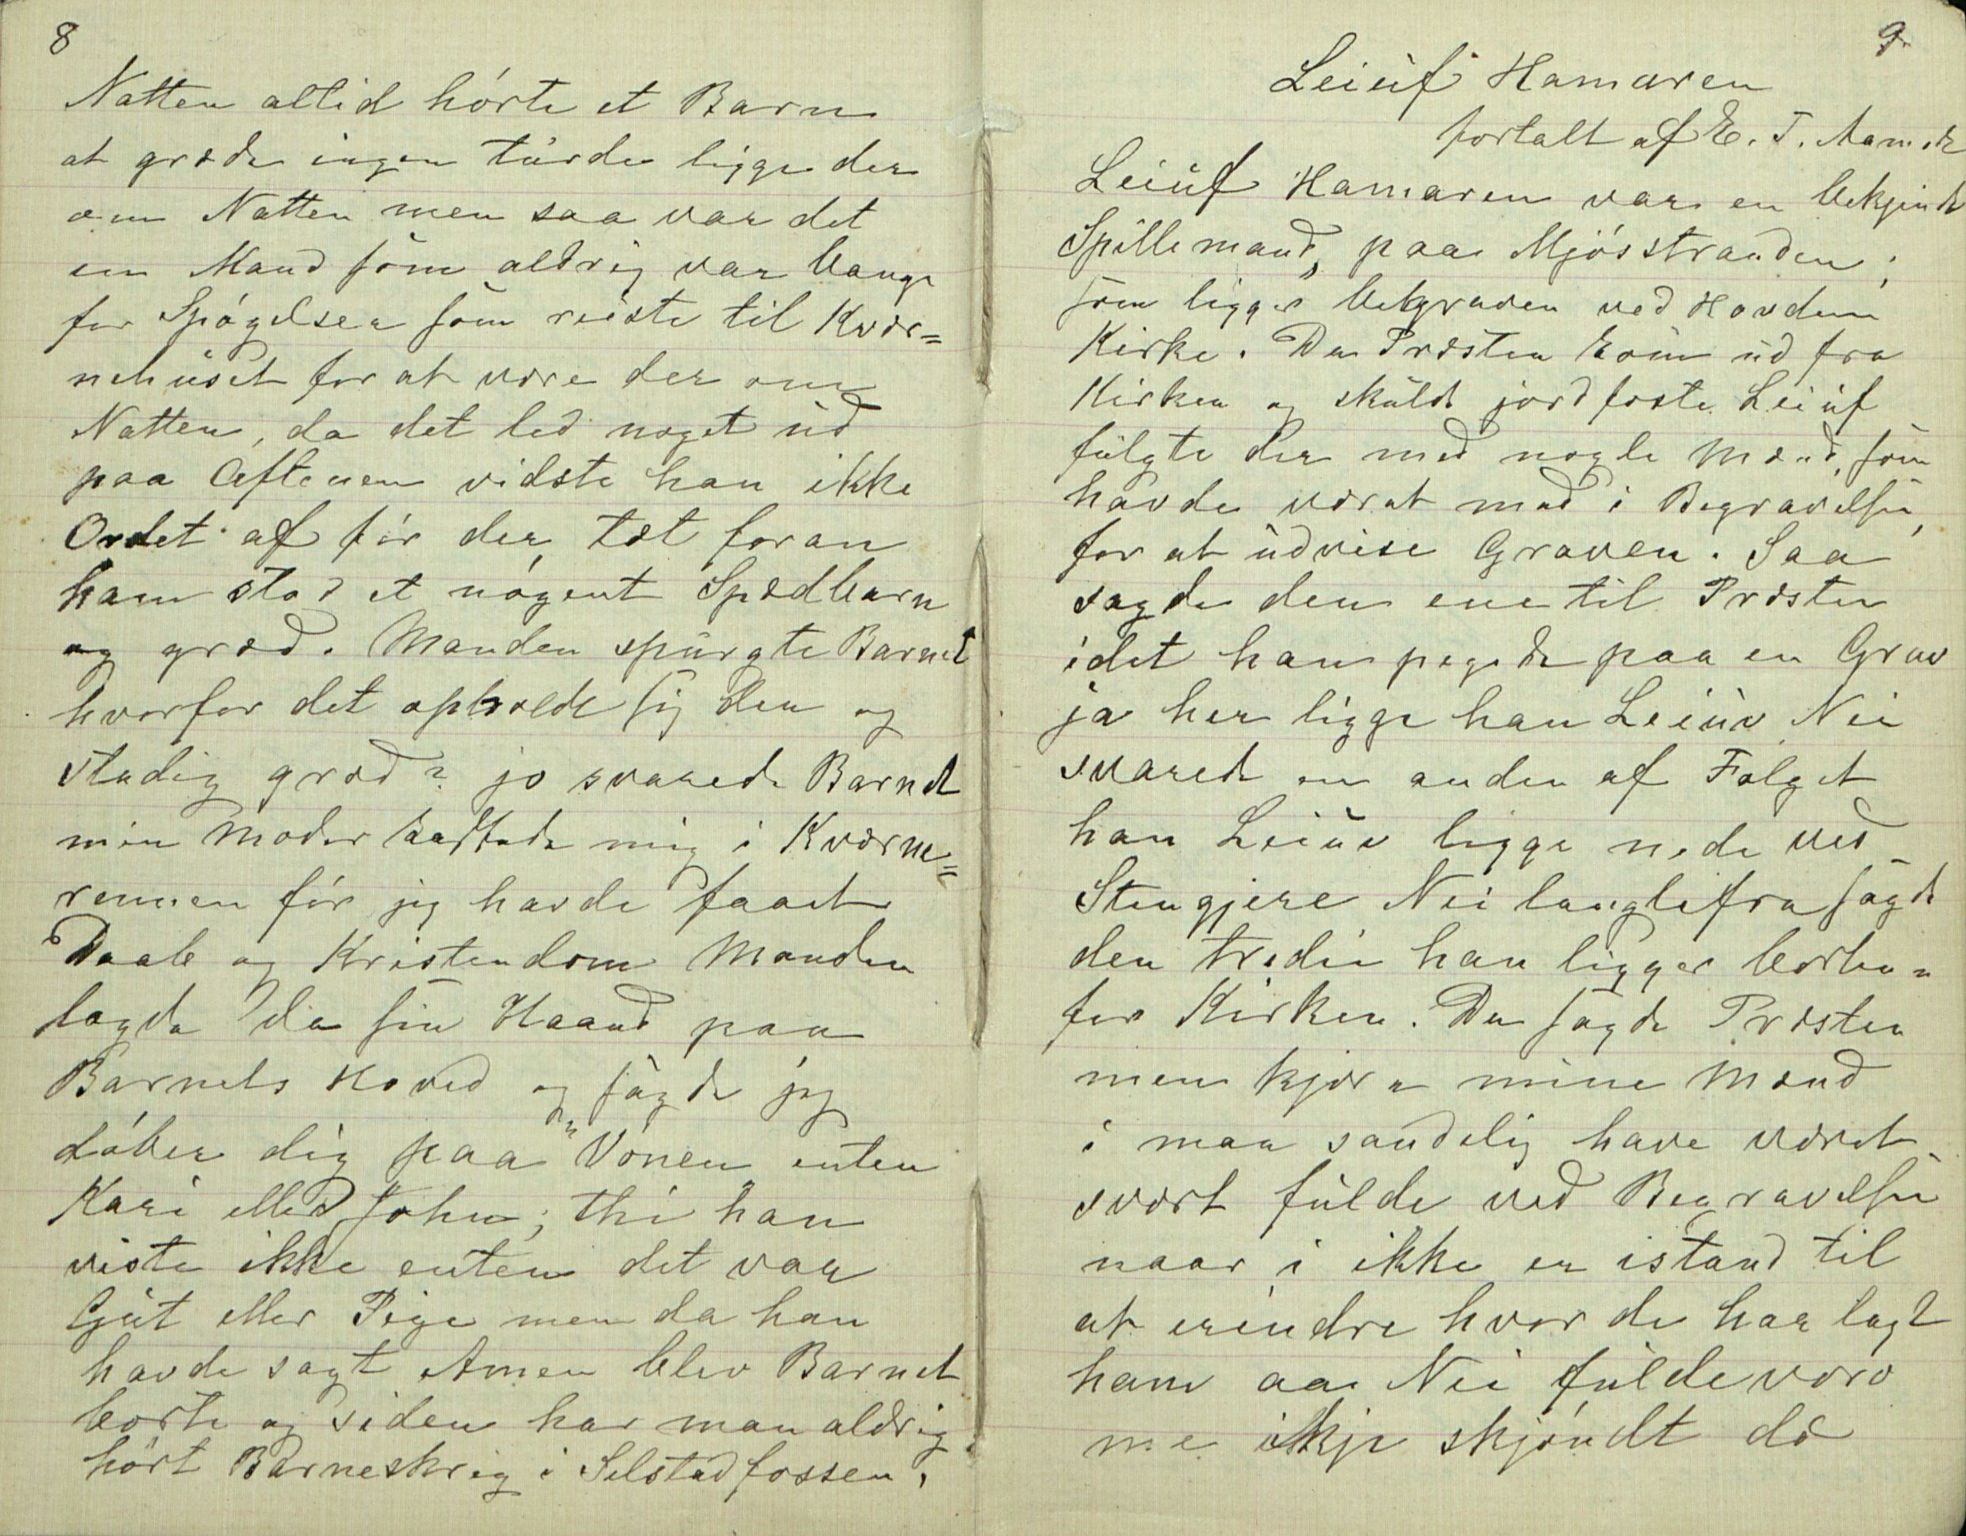 8
Natten altid hórte et Barn
at græde ingen turde ligge der
om Natten men saa var det
en Mand som aldrig var bange
for Spógelser som reiste til Kvær=
nehuset for at være der om
Natten, da det led noget ud
paa Aftenen vidste han ikke
Ordet af fór der tæt foran
ham stod et nógent Spædbarn
og græd. Manden spurgte Barnet
hvorfor det opholdt sig der og
stadig græd? jo svarede Barnet
min Moder kastede mig i Kværne=
rennen fór jeg havde faaet
Daab og Kristendom Manden
lagde da sin Haand paa
Barnets Hoved og sagde jeg
dóber dig paa "Vonen enten
Kari eller John; thi han
viste ikke enten det var
Gut eller Pige men da han
havde sagt Amen blev Barnet
borte og siden har man aldrig
hórt Barneskrig i Selstadfossen.
9
Leiuf Hamaren
fortalt af E. T.
Leiuf Hamaren var en bekjendt
Spillemand, paa Mjósstranden;
som ligger begraven ved Hovdens
Kirke. Da Præsten kom ud fra
Kirken og skulde jordfæste Leiuf
fulgte der med nogle Mænd, som
havde været med i Begravelsen,
for at udvise Graven. Saa
sagde den ene til Præsten
idet han pegede paa en Grav
ja her ligge han Leiuv Nei
svarede en anden af Følget
han Leiuv ligge nede ved
Stengjere Nei langtifra sagde
den tredie han ligger borten
for Kirken. Da sagde Præsten
men kjære mine Mænd
i maa sandelig have været
svært fulde ved Begravelsen
naar i ikke er istand til
at erindre hvor de har lagt
ham aa Nei fulde voro
me ikkje skjóndt də